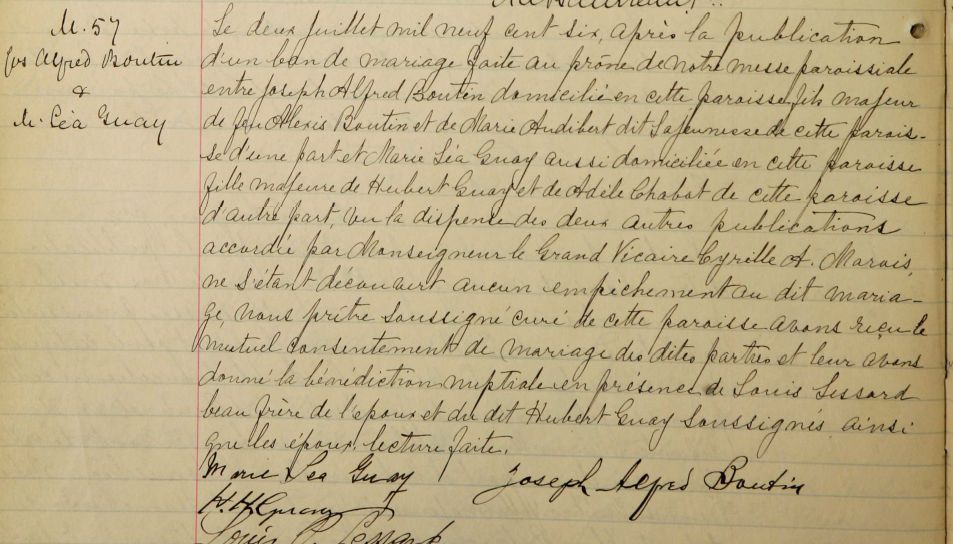 M. 57
Jos Alfred Boutin
&
M. Léa Guay
Le deux Juillet mil neuf cent six, après la publication
d'un ban de mariage faite au prône de notre messe paroissiale
entre Joseph Alfred Boutin domicilié en cette paroisse, fils majeur
de feu Alexis Boutin et de Marie Audibert dit Lajeunesse de cette parois-
se d'une part et Marie Léa Guay aussi domiciliée en cette paroisse
fille majeure de Hubert Guay et de Adèle Chabot de cette paroisse
d'autre part, vu la dispense des deux autres publications
accordée par Monseigneur le Grand Vicaire Cyrille A. Marois,
ne s'étant découvert aucun empêchement au dit maria-
ge, nous prêtre soussigné curé de cette paroisse avons reçu le
mutuel consentement de mariage des dites parties et leur avons
donné la bénédiction nuptiale en présence de Louis Lessard
beau frère de l'epoux et du dit Hubert Guay soussignés ainsi
que les époux, lecture faite.
Marie Léa Guay Joseph Alfred Boutin
H. H Guay
Louis P. Lessard